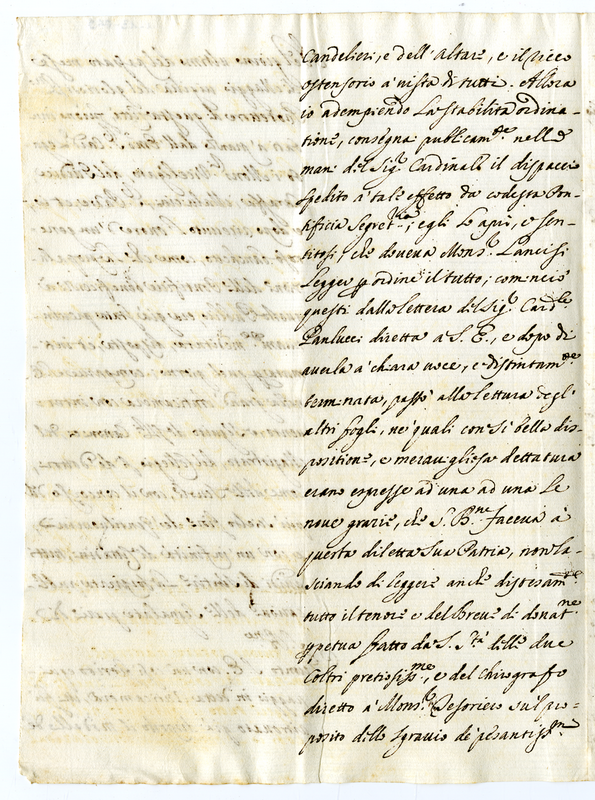 Candelieri, e dell'Altare, e il ricco
ostensorio à vista di tutti. Allora
io adempiendo la stabilita ordina-
tione, consegnai publicam.te nelle
mani del Sig.r Cardinale il dispaccio
spedito à tale effetto da codesta Pon-
tificia Segret.ria; egli lo aprì, e sen-
titosi, che doveva Mons.r Lancisi
legger p ordine il tutto; cominciò
questi dalla lettera del Sig.r Card.le
Paulucci diretta à S. E., e dopo di
averla à chiara voce, e distintam.te
terminata, passò alla lettura degl'
altri fogli, ne' quali con sì bella dis-
positione, e meravigliosa dettatura
erano espresse ad una ad una le
nove grazie, che S. B.ne faceva à
questa diletta Sua Patria, non la-
sciando di leggere anche distesam.te
tutto il tenore e del Breve di donat.ne
ppetua fatto da S. S.tà delle due
Coltri pretiosiss.me, e del chirografo
diretto à Mons.r Tesoriero sul pro-
posito dello sgravio de' pesantiss.mi